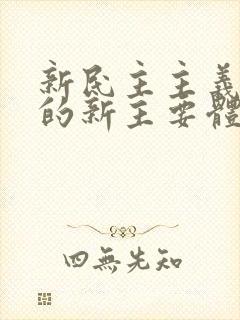 新民主主義
的新主要體
四無先知